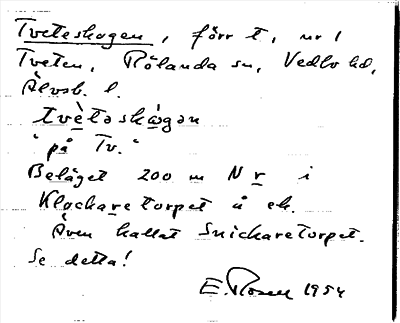 Tveteskogen, förr t., nr 1
Tveten, Rölanda sn, Vedbo hd,
Älvsb. l.
tvètəskògən
"på Tv."
Beläget 200 m N r i
Klockaretorpet å ek.
Även kallat Snickaretorpet.
Se detta!
E. Rosell 1954